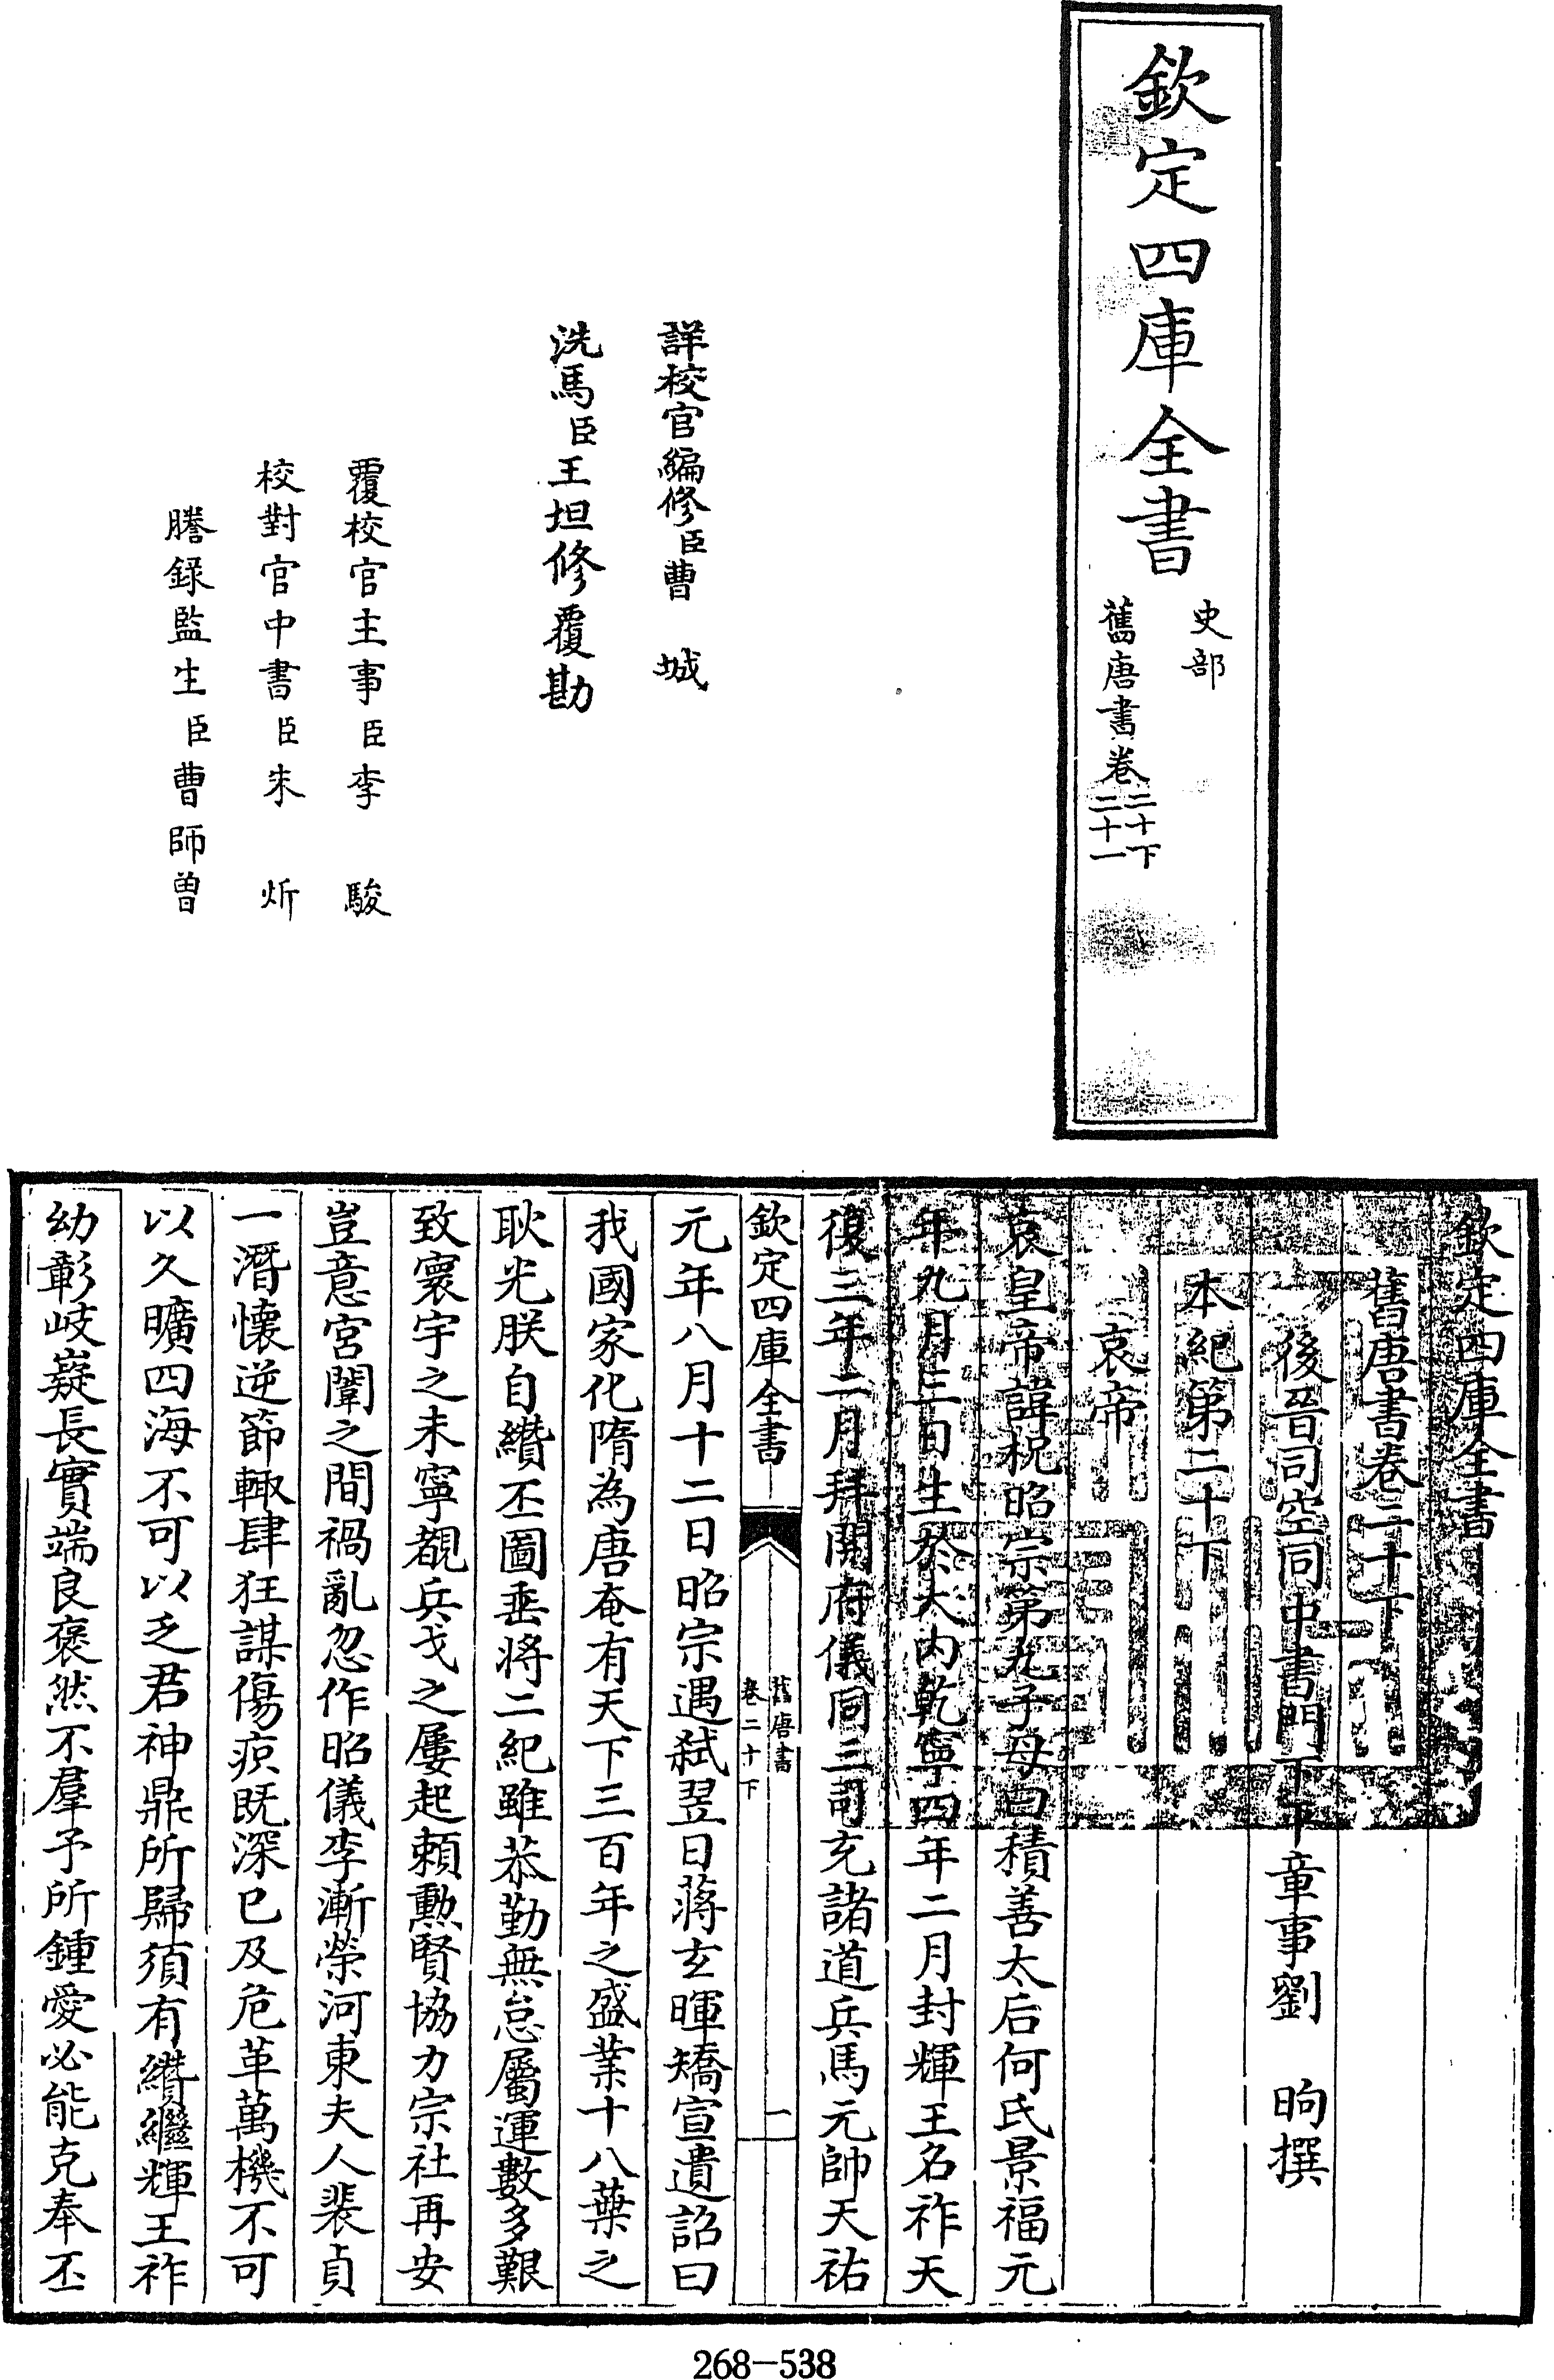 欽定四庫全書
史部
舊唐書卷二十下
二十一
詳校官編修臣曹城
洗馬臣王坦修覆勘
覆校官主事臣李駿
校對官中書臣朱炘
謄錄監生臣曹師曾
欽定四庫全書
舊唐書卷二十下
後晉司空同中書門下平章事劉昫撰
本紀第二十下
哀帝
哀皇帝諱柷昭宗第九子母曰積善太后何氏景福元
年九月三日生於大内乾寧四年二月封輝王名祚天
復三年二月拜開府儀同三司充諸道兵馬元帥天祐
欽定四庫全書
舊唐書
卷二十下
一
元年八月十二日昭宗遇弒翌日蔣玄暉矯宣遺詔曰
我國家化隋為唐奄有天下三百年之盛業十八葉之
耿光朕自纘丕圖垂將二紀雖恭勤無怠屬運數多艱
致寰宇之未寧覩兵戈之屢起賴勲賢協力宗社再安
豈意宮闈之間禍亂忽作昭儀李漸榮河東夫人裴貞
一潛懷逆節輙肆狂謀傷痕既深已及危革萬機不可
以久曠四海不可以乏君神鼎所歸須有纘繼輝王祚
幼彰岐嶷長實端良裦然不羣予所鍾愛必能克奉丕
268-538